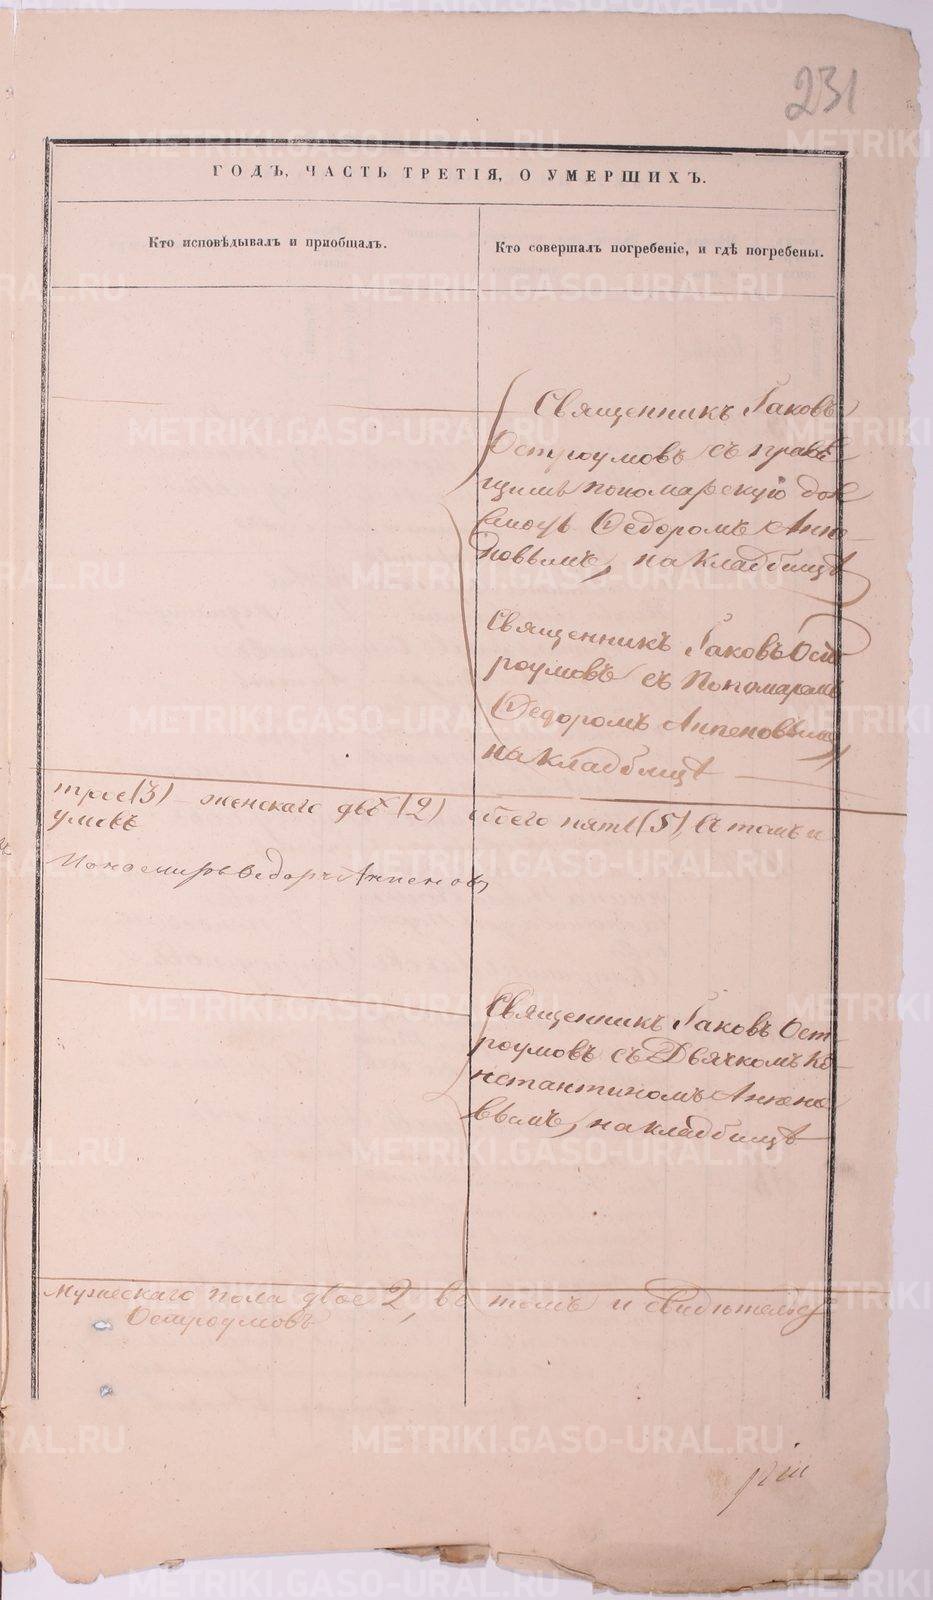 231
ГОДЪ, ЧАСТЬ ТРЕТІЯ, О УМЕРШИХЪ.
Кто исповѣдывалъ и пріобщалъ.
Кто совершалъ погребеніе, и гдѣ погребены.
Священникъ Іаковъ
Остроумовъ съ правя
щимъ пономарскую дол
Федоромъ Аппе-
новымъ, на кладбищѣ
Священникъ Іаковъ Ост
роумовъ съ Пономаремъ
Федоромъ Аппеновымъ,
на кладбищѣ
трое (3) женскаго двѣ (2) обоего пять (5), въ томъ и
умовъ
Пономарь Ѳедоръ Аппеновъ
Священникъ Іаковъ Ост-
роумовъ съ Дьячкомъ Ко-
нстантиномъ Аппено
вымъ, на кладбищѣ
Мужескаго пола двое 2, въ томъ и свидѣтельст
Остроумовъ
METRIKI.GASO-URAL.RU